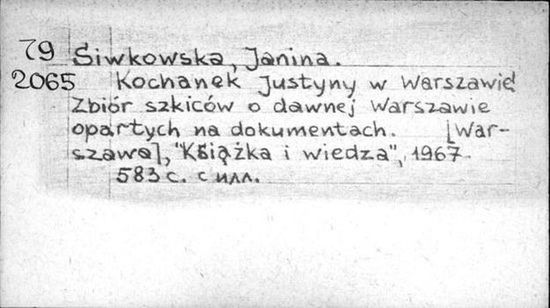 79 Siwkowska, Janina.
2065 Kochanek Justyny w Warszawie
Zbiór szkiców o dawnej Warszawie
opartych na dokumentach. [War-
szawa], "Książka i wiedza", 1967.
583 с. с илл.